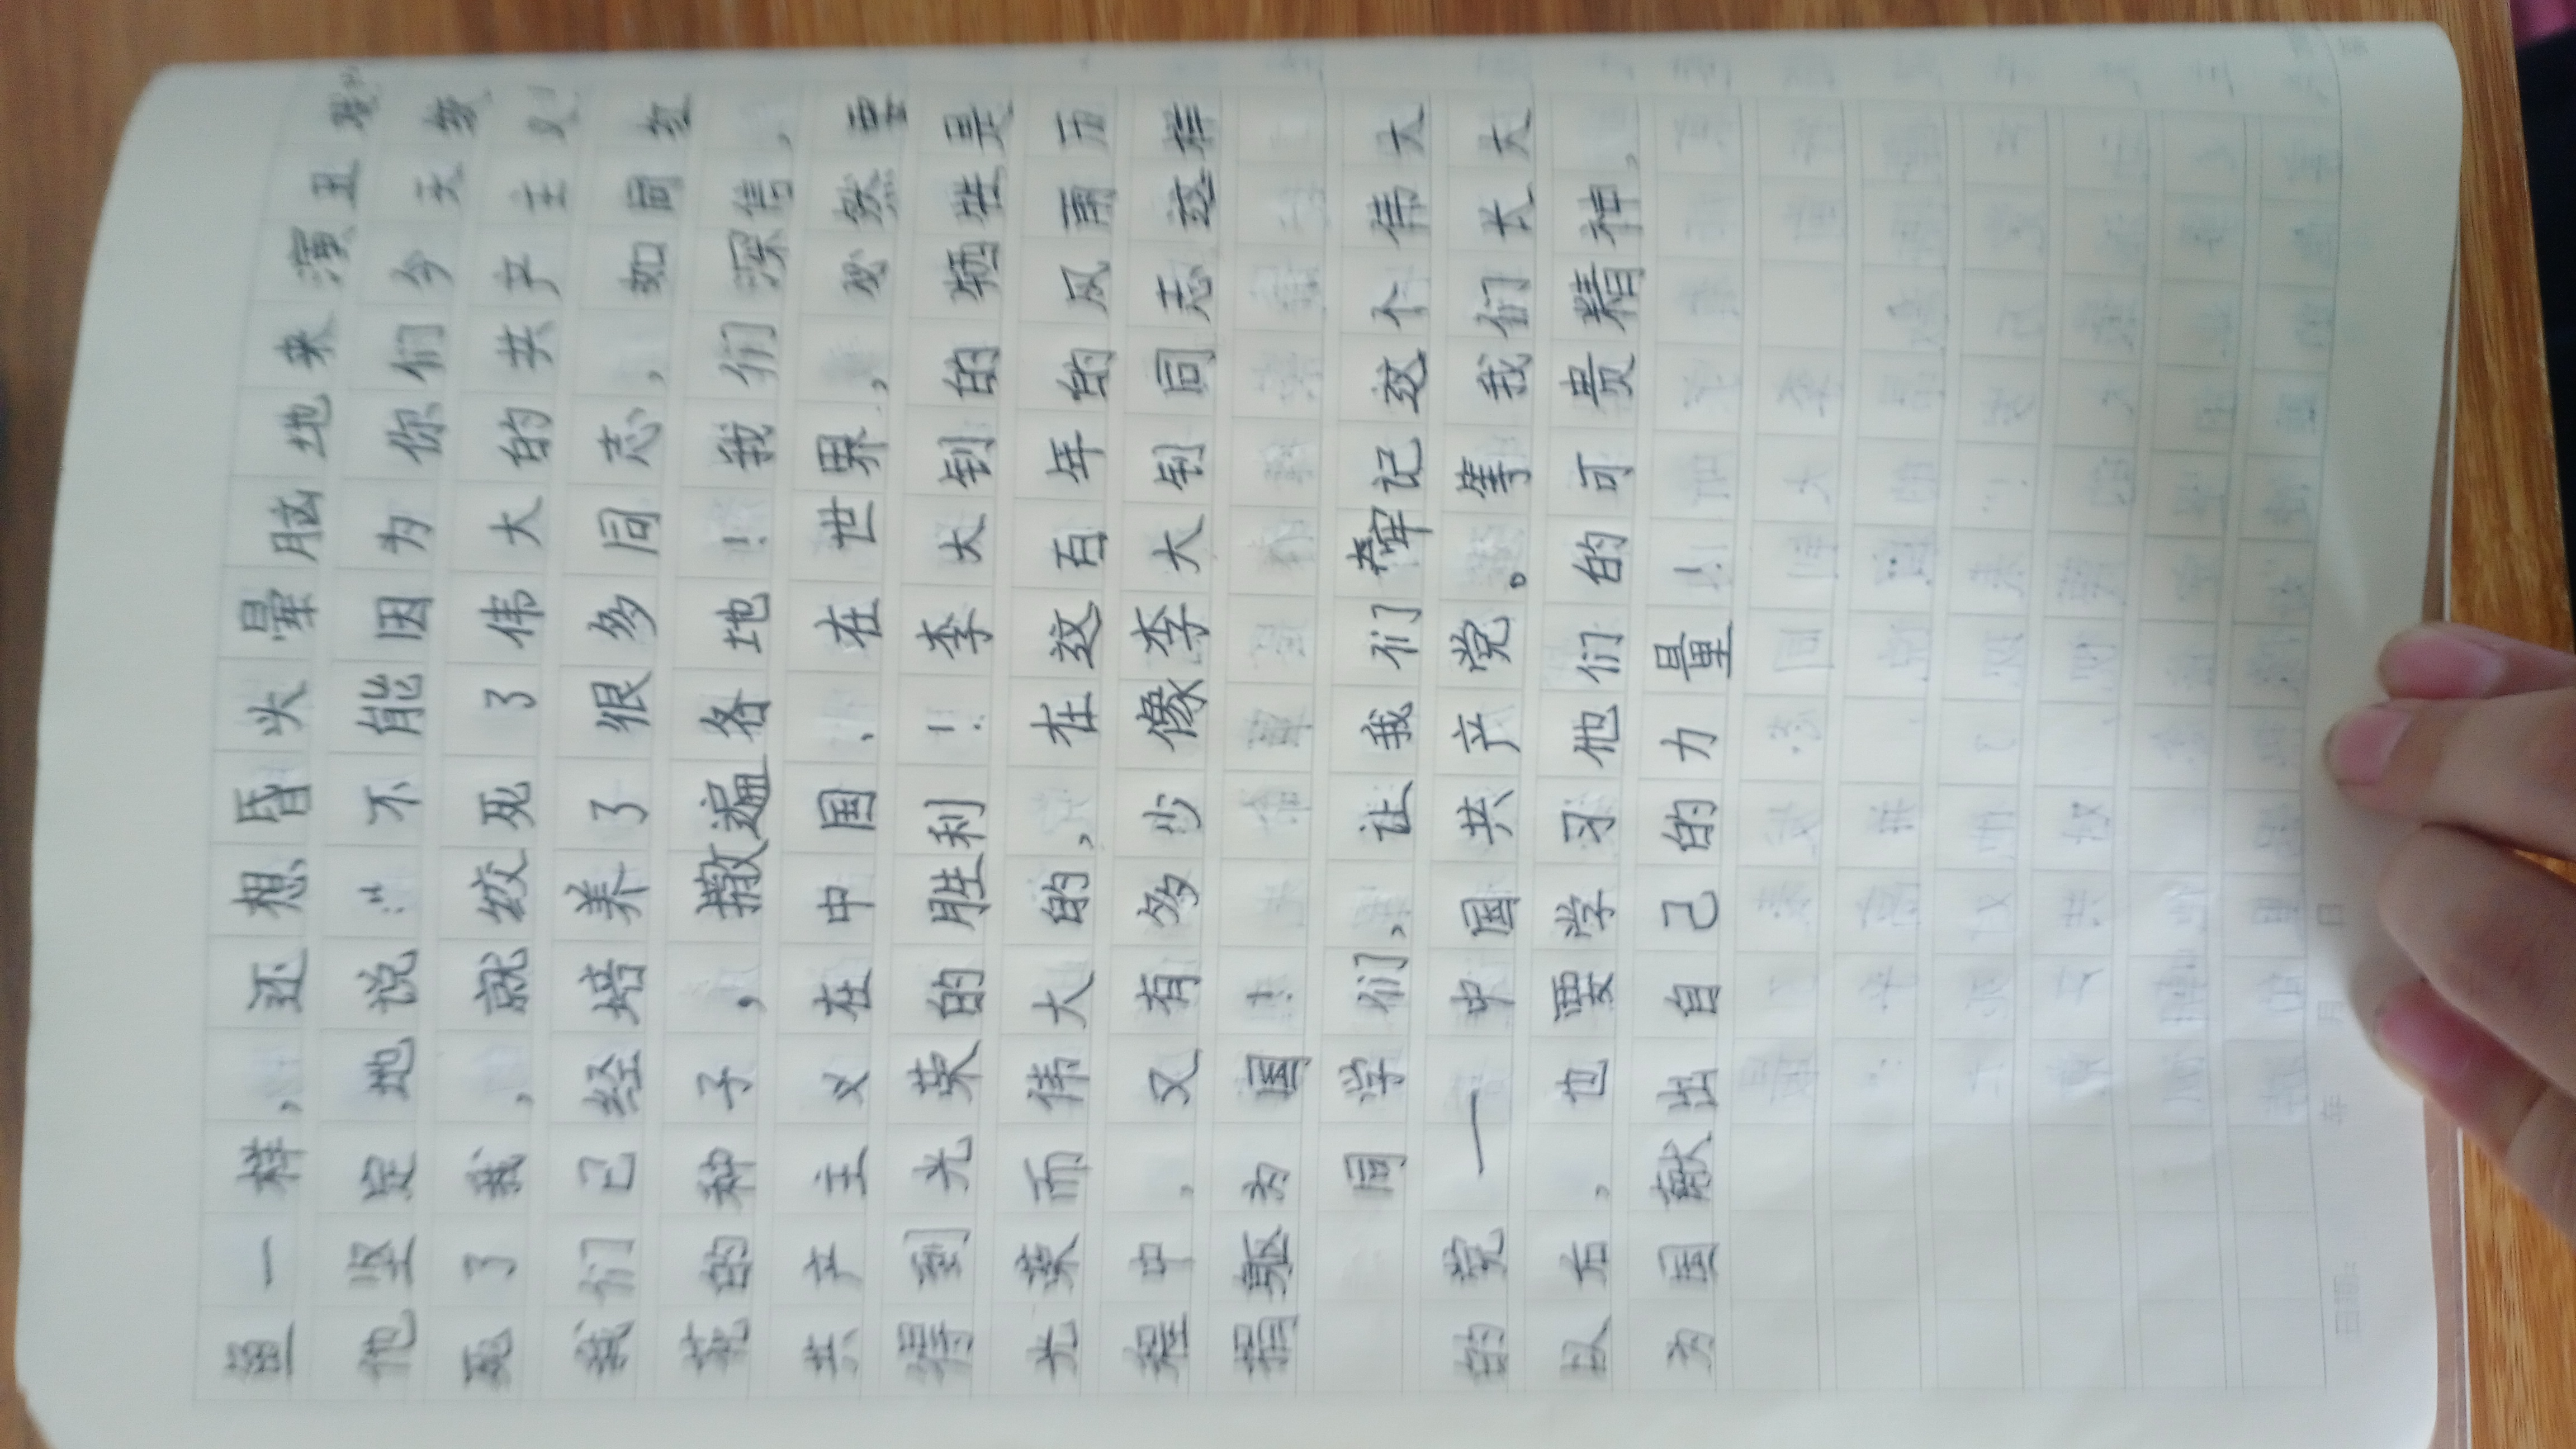 鱼一样，还想昏头晕脑地来演丑戏"
他坚定地说："不能因为你们今天绞
死了我，就绞死了伟大的共产主义！
我们已经培养了很多同志，如同红
花的种子，撒遍各地！我们深信，
共产主义在中国、在世界，必然要
得到光荣的胜利！李大钊的牺牲是
光荣而伟大的，在这百年的风雨历
程中，又有多少像李大钊同志这样
捐躯为国！
同学们，让我们牢记这个伟大
的党——中国共产党。等我们长大
以后，也要学习他们的可贵精神，
为国献出自己的力量！
年 月 日